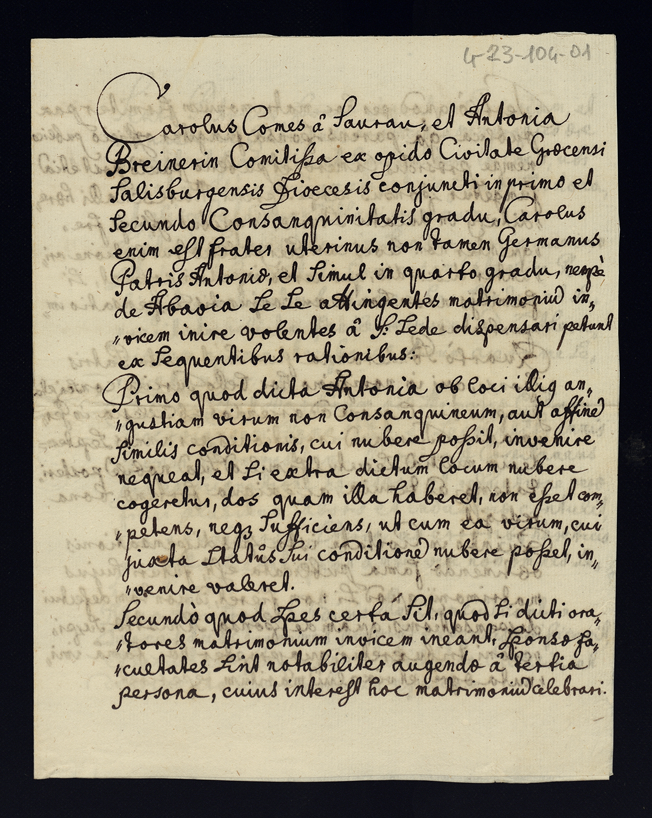 4-23-104-01
Carolus Comes â Saurau, et Antonia
Breinerin Comitißa ex opido Civitate Græcensi
Salisburgensis Dioecesis conjuncti in primo et
Secundo Consanquinitatis gradu, Carolus
enim est frater uterinus non tamen Germanus
Patris Antoniæ, et Simul in quarto gradu, nempè
de Abavia Se Se attingentes matrimoniũ in„
„vicem inire volentes â S: Sede dispensari petunt
ex Sequentibus rationibus:
Primo quod dicta Antonia ob loci illig an„
„gustiam virum non Consanquineum, aut affinẽ
Similis conditionis, cui nubere poßit, invenire
nequeat, et Si extra dictum locum nubere
cogeretur, dos quam illa haberet, non eßet com„
„petens, neqꝫ Sufficiens, ut cum ea virum, cui
juxta Statûs Sui conditionẽ nubere poßet, in„
„venire valeret.
Secundò quod Spes certa Sit, quod Si dicti ora„
„tores matrimonium invicem ineant, Sponsæ fa„
„cultates Sint notabiliter augendæ â tertia
persona, cuius interest hoc matrimoniũ celebrari.